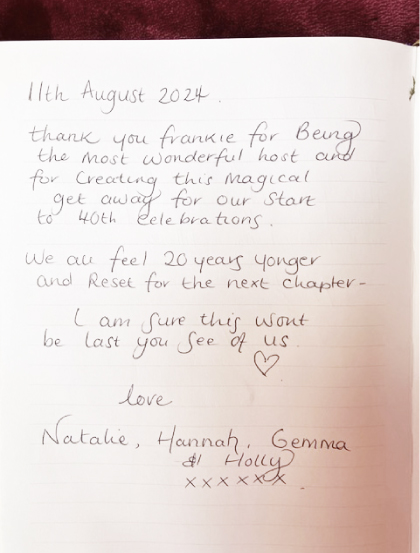 11th August 2024.
thank you frankie for Being
the most wonderful host and
for Creating this Magical
get away for our Start
to 40th Celebrations.
We all feel 20 years yonger
and Reset for the next chapter-
I am Sure this wont
be last you See of us.
love
Natalie, Hannah, Gemma
& Holly
xxxxxx.